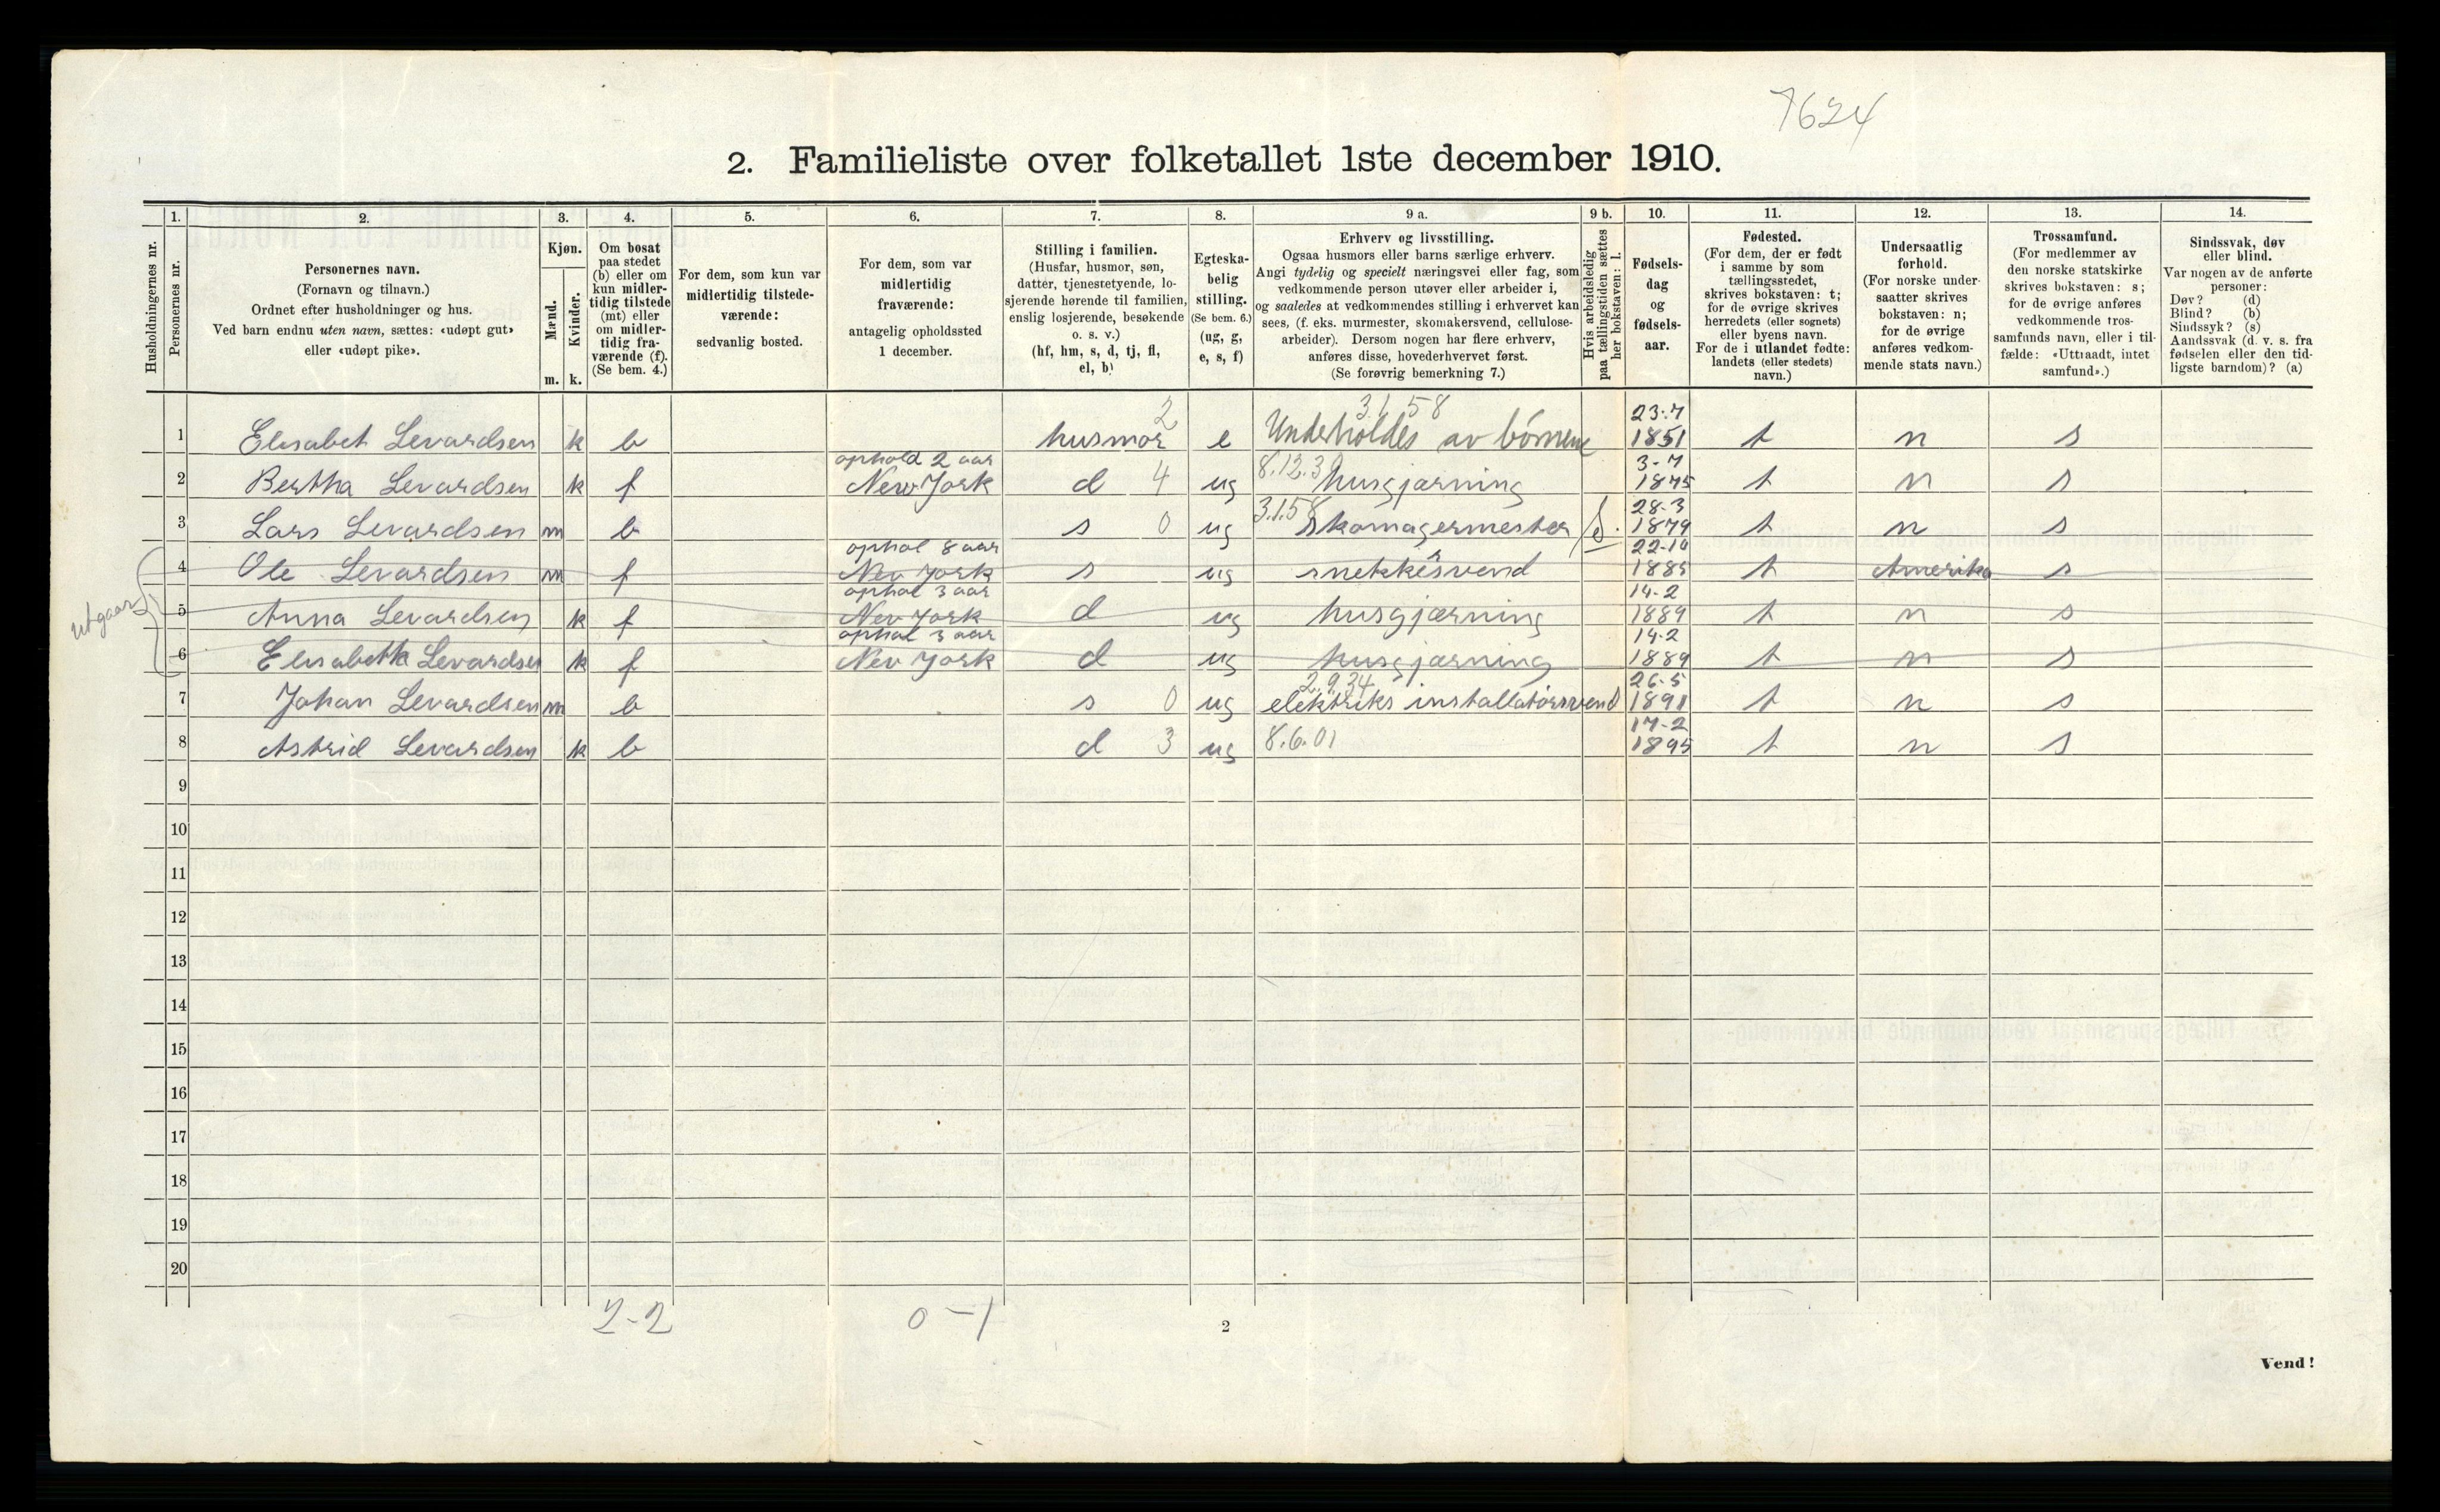 7624
2. Familieliste over folketallet 1ste december 1910.
1. 2. 3. 4. 5. 6. 7. 8. 9 a. 9 b. 10. 11. 12. 13. 14.
Husholdningernes nr.
Personernes nr.
Personernes navn.
(Fornavn og tilnavn.)
Ordnet efter husholdninger og hus.
Ved barn endnu uten navn, sættes: «udøpt gut»
eller «udøpt pike».
Kjøn.
Mænd.
Kvinder.
m. k.
Om bosat
paa stedet
(b) eller om
kun midler-
tidig tilstede
(mt) eller
om midler-
tidig fra-
værende (f).
(Se bem. 4.)
For dem, som kun var
midlertidig tilstede-
værende:
sedvanlig bosted.
For dem, som var
midlertidig
fraværende:
antagelig opholdssted
1 december.
Stilling i familien.
(Husfar, husmor, søn,
datter, tjenestetyende, lo-
sjerende hørende til familien,
enslig losjerende, besøkende
o. s. v.)
(hf, hm, s, d, tj, fl,
el, b)
Egteska-
belig
stilling.
(Se bem. 6.)
(ug, g,
e, s, f)
Erhverv og livsstilling.
Ogsaa husmors eller barns særlige erhverv.
Angi tydelig og specielt næringsvei eller fag, som
vedkommende person utøver eller arbeider i,
og saaledes at vedkommendes stilling i erhvervet kan
sees, (f. eks. murmester, skomakersvend, cellulose-
arbeider). Dersom nogen har flere erhverv,
anføres disse, hovederhvervet først.
(Se forøvrig bemerkning 7.)
Hvis arbeidsledig
paa tællingstiden sættes
her bokstaven: l.
Fødsels-
dag
og
fødsels-
aar.
Fødested.
(For dem, der er født
i samme by som
tællingsstedet,
skrives bokstaven: t;
for de øvrige skrives
herredets (eller sognets)
eller byens navn.
For de i utlandet fødte:
landets (eller stedets)
navn.)
Undersaatlig
forhold.
(For norske under-
saatter skrives
bokstaven: n;
for de øvrige
anføres vedkom-
mende stats navn.)
Trossamfund.
(For medlemmer av
den norske statskirke
skrives bokstaven: s;
for de øvrige anføres
vedkommende tros-
samfunds navn, eller i til-
fælde: «Uttraadt, intet
samfund».)
Sindssvak, døv
eller blind.
Var nogen av de anførte
personer:
Døv? (d)
Blind? (b)
Sindssyk? (s)
Aandssvak (d. v. s. fra
fødselen eller den tid-
ligste barndom)? (a)
2 3.1.58 23-7
1 Elisabet Levardsen k b husmor e Underholdes av børnene 1851 t n s
ophold 2 aar 3-7
2 Bertha Levardsen k f New York d 4 ug husgjærning 1875 t n s
3.1.58 28-3
3 Lars Levardsen m b s 0 ug skomagermester 1879 t n s
ophol 8 aar 22-10
4 Ole Levardsen m f Nev York s ug snekkersvend 1885 t Amerika s
ophol 3 aar 14-2
utgaar
5 Anna Levardsen k f Nev York d ug husgjærning 1889 t n s
ophol 3 aar 14-2
6 Elisabeth Levardsen k f Nev York d ug husgjærning 1889 t n s
2.9.34 26-5
7 Johan Levardsen m b s 0 ug elektriks installatørsvend 1891 t n s
17-2
8 Astrid Levardsen k b d 3 ug 8.6.01 1895 t n s
9
10
11
12
13
14
15
16
17
18
19
20
2-2 0-1
2
Vend!